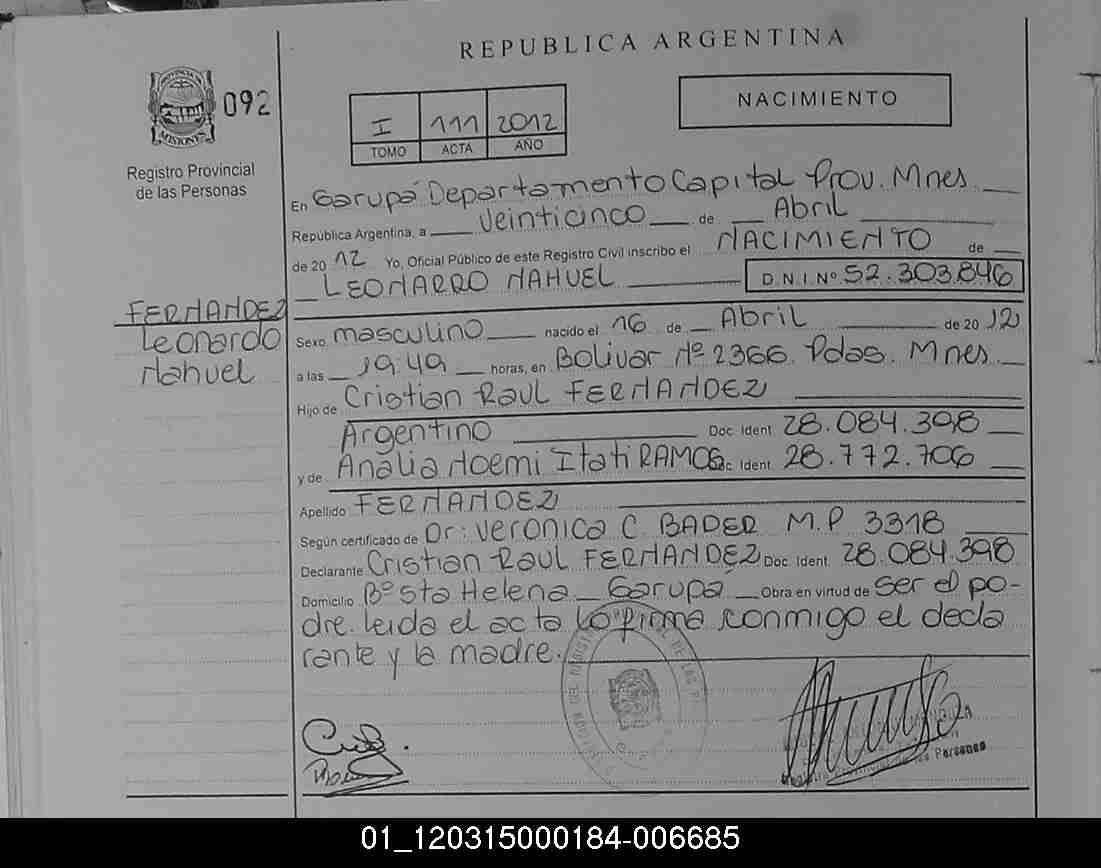 REPUBLICA ARGENTINA
PROVINCIA DE MISIONES
092
Registro Provincial
de las Personas
I 111 2012
TOMO ACTA AÑO
NACIMIENTO
En Garupá Departamento Capital Prov. Mnes.
República Argentina, a veinticinco de Abril
de 20 12 Yo, Oficial Público de este Registro Civil inscribo el NACIMIENTO de
LEONARRO NAHUEL D.N.I. Nº 52.303.846
FERNANDEZ
Leonardo
Nahuel
Sexo masculino nacido el 16 de Abril de 20 12
a las 19:49 horas, en Bolivar Nº 2366. Pdas. Mnes.
Hijo de Cristian Raul FERNANDEZ
Argentino Doc. Ident. 28.084.398
y de Analia Noemi Itati RAMOS Doc. Ident. 28.772.706
Apellido FERNANDEZ
Según certificado de Dr: Veronica C. BADER M.P 3318
Declarante Cristian Raul FERNANDEZ Doc. Ident. 28.084.398
Domicilio Bº Sta Helena Garupá Obra en virtud de ser el pa-
dre. Leida el acta la firma conmigo el decla
rante y la madre.
de las Personas
01_120315000184-006685